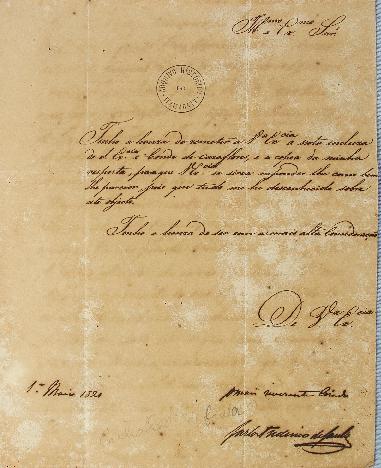 Ill.mo e Ex.mo Snr.
Tenho a honra de remetter a V.a Ex.cia a nota incluza
de S. Ex.cia o Conde de Caza flor, e a copia da minha
resposta, para que V. Ex.cia se sirva responder lhe como bem
lhe parecer, pois que tudo me he desconhecido sobre
este objecto.
Tenho a honra de ser com a mais alta Consideração
De V.a Ex.cia
1.º Maio 1821
o mais reverente Criado
Carlos Frederico de Paula